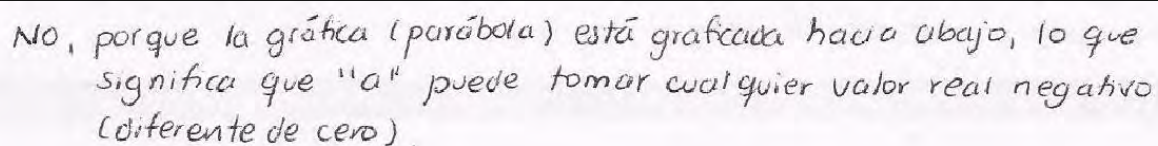 No, porque la gráfica (parábola) está graficada hacia abajo, lo que
significa que "a" puede tomar cualquier valor real negativo
(diferente de cero).